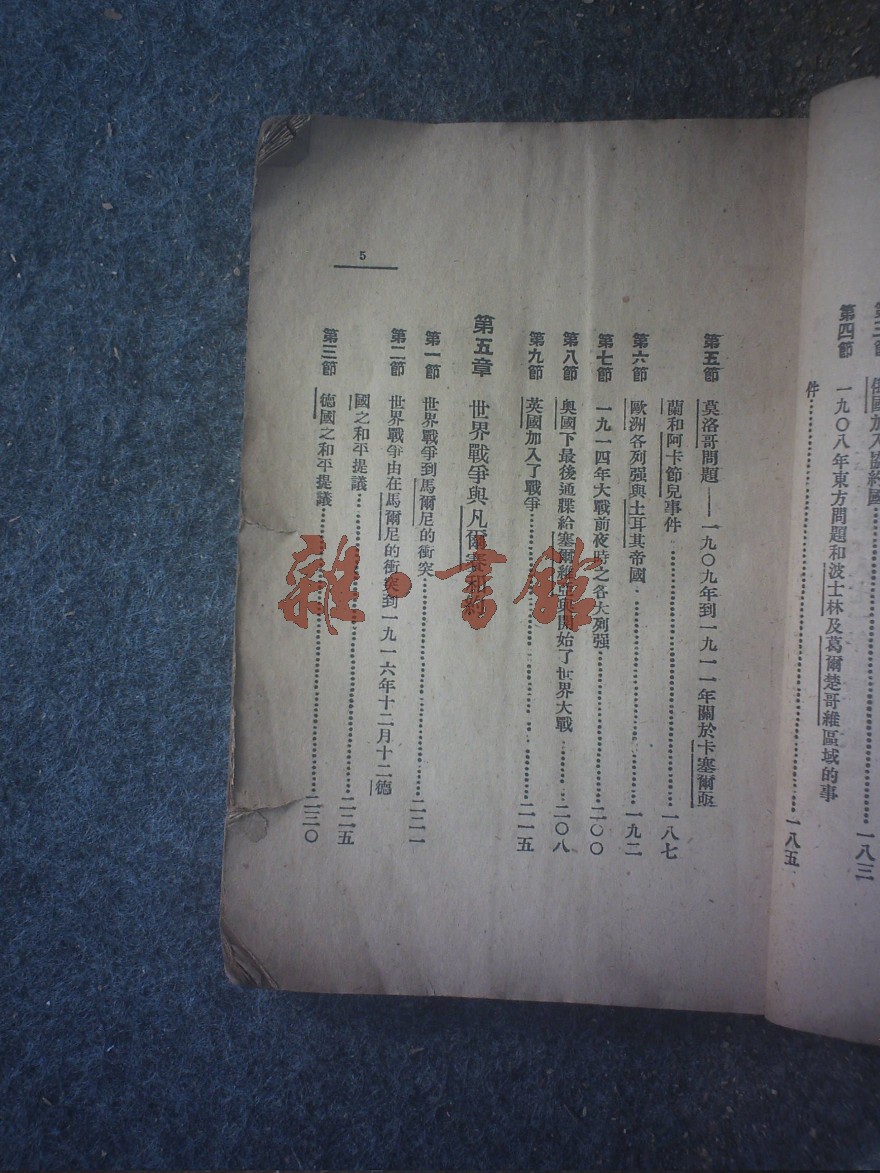 俄國加入協約國
第四節 一九〇八年東方問題和波士林及葛爾楚哥維區域的事
一八三
件……………………一八五
第五節 莫洛哥問題——一九〇九年到一九一一年關於卡塞爾與
蘭和阿卡節兒事件……………………一八七
第六節 歐洲各列强與土耳其帝國……………………一九二
第七節 一九一四年大戰前夜時之各大列强……………………二〇〇
第八節 奥國下最後通牒給塞爾維亞與開始了世界大戰………二〇八
第九節 英國加入了戰爭……………………二一五
第五章 世界戰爭與凡爾賽和約
第一節 世界戰爭到馬爾尼的衝突……………………二二一
第二節 世界戰爭由在馬爾尼的衝突到一九一六年十二月十二德
國之和平提議……………………二二五
第三節 德國之和平提議……………………二三〇
5
雜·書館